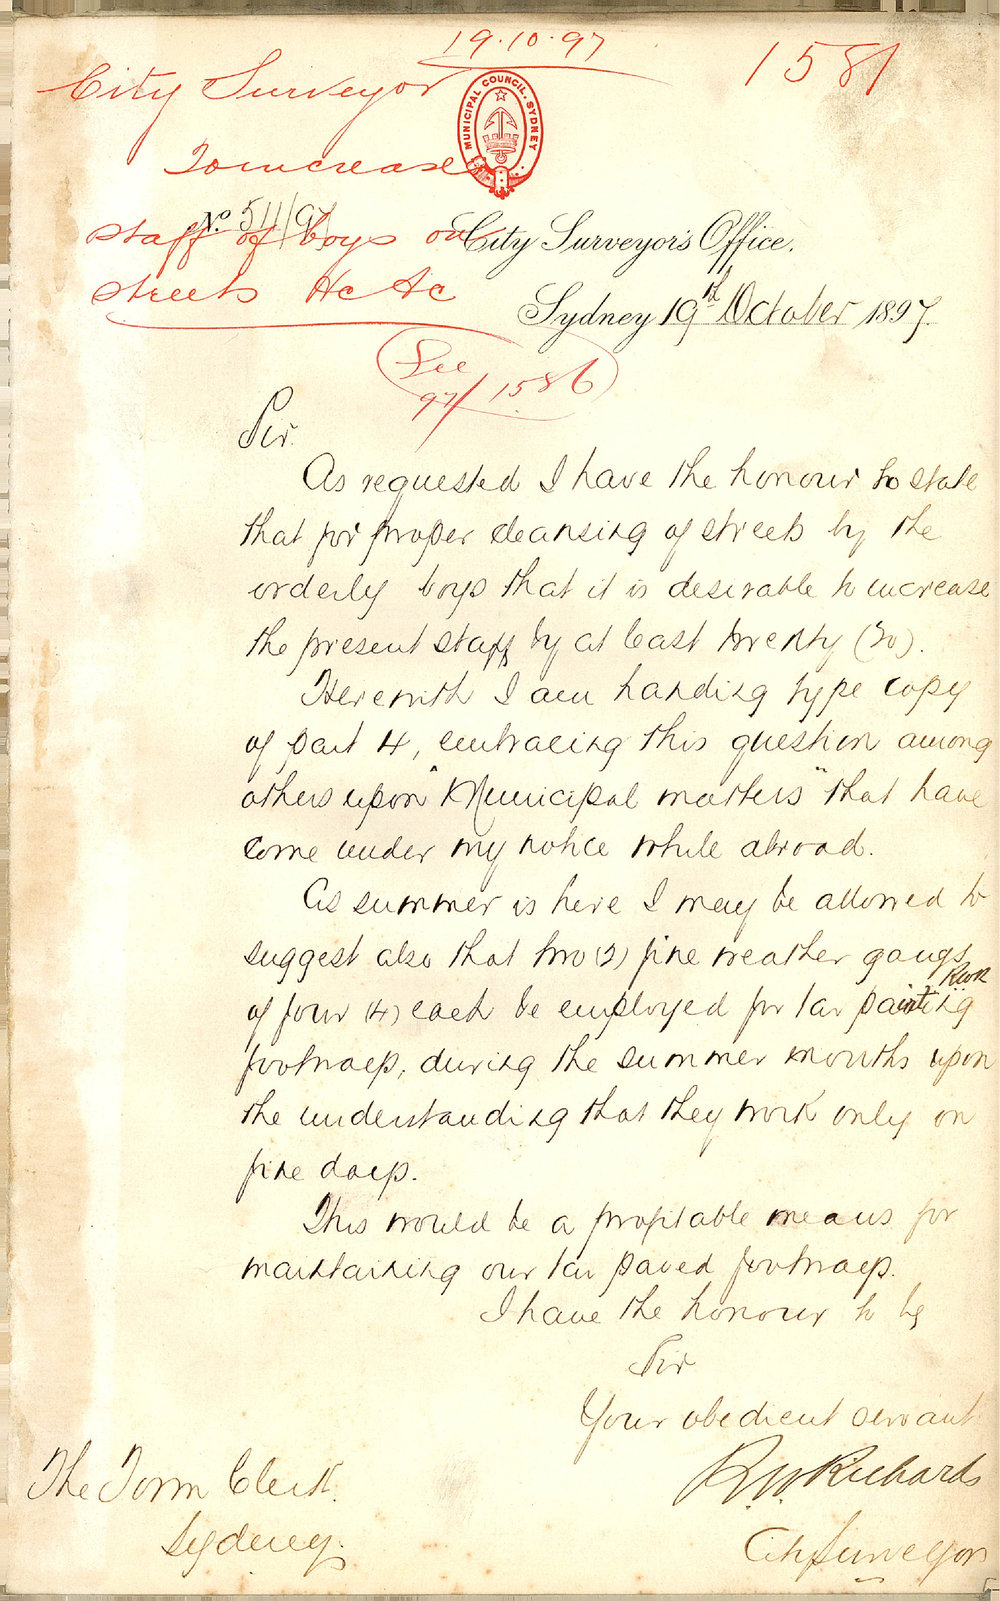 19.10.97
1581
City Surveyor
MUNICIPAL COUNCIL. SYDNEY
To increase
No. 511/97
staff of boys on
City Surveyor's Office.
streets &c &c
Sydney 19th October 1897.
See
97/1586
Sir
As requested I have the honour to state
that for proper cleansing of streets by the
orderly boys that it is desirable to increase
the present staff by at least twenty (20).
Herewith I am handing type copy
of part 4, embracing this question among
others upon "Municipal matters" that have
come under my notice while abroad.
As summer is here I may be allowed to
suggest also that two (2) fine weather gangs
RWR
of four (4) each be employed for tar painting
footways, during the summer months upon
the understanding that they work only on
fine days.
This would be a profitable means for
maintaining our tar paved footways.
I have the honour to be
Sir
Your obedient servant
R W Richards
City Surveyor
The Town Clerk.
Sydney.